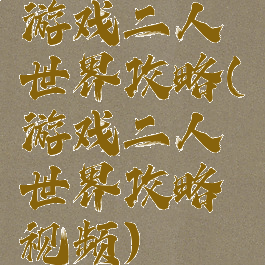 游戏二人
世界攻略(
游戏二人
世界攻略
视频)